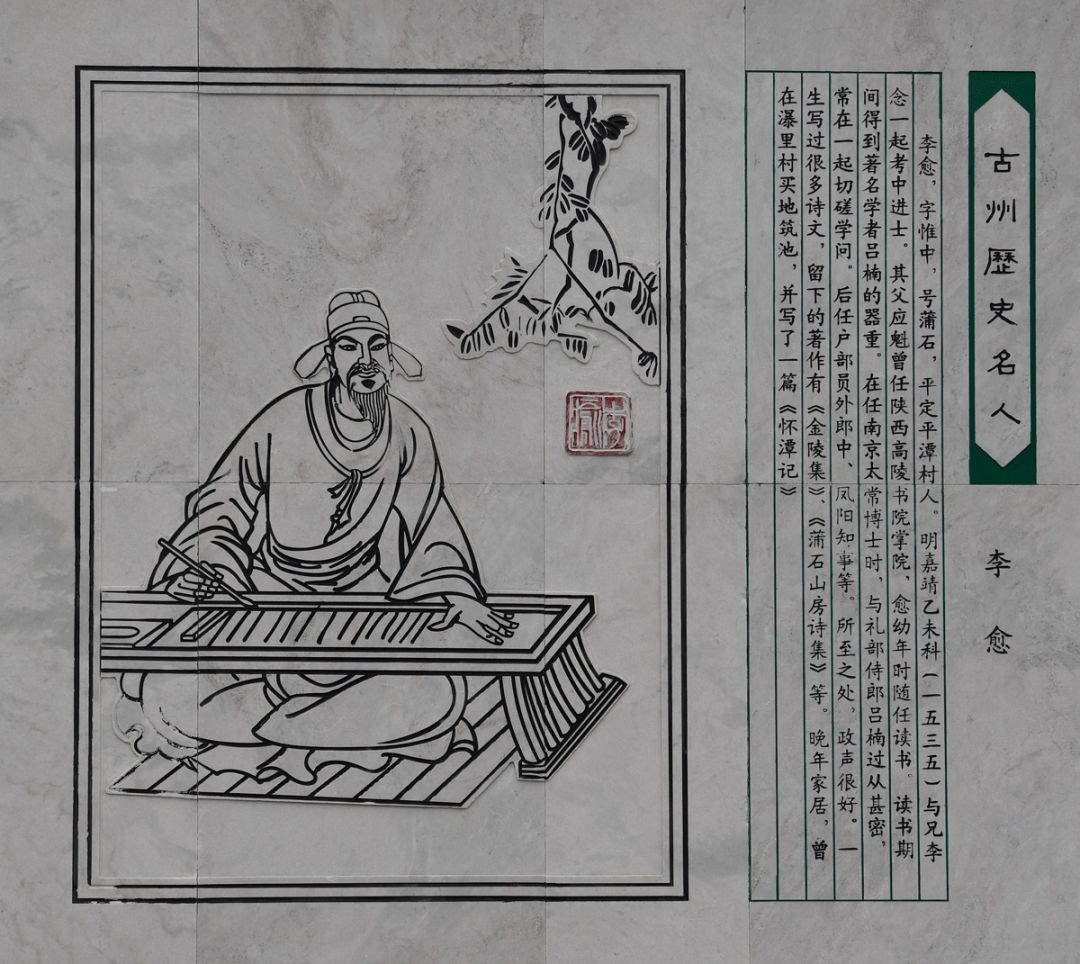 古州歷史名人
李愈
李愈，字惟中，号蒲石，平定平潭村人。明嘉靖乙未科(一五三五)与兄李
念一起考中进士。其父应魁曾任陕西高陵书院掌院，愈幼年时随任读书。读书期
间得到著名学者吕楠的器重。在任南京太常博士时，与礼部侍郎吕楠过从甚密，
常在一起切磋学问。后任户部员外郎中、凤阳知事等。所至之处，政声很好。一
生写过很多诗文，留下的著作有《金陵集》、《蒲石山房诗集》等。晚年家居，曾
在瀑里村买地筑池，并写了一篇《怀潭记》